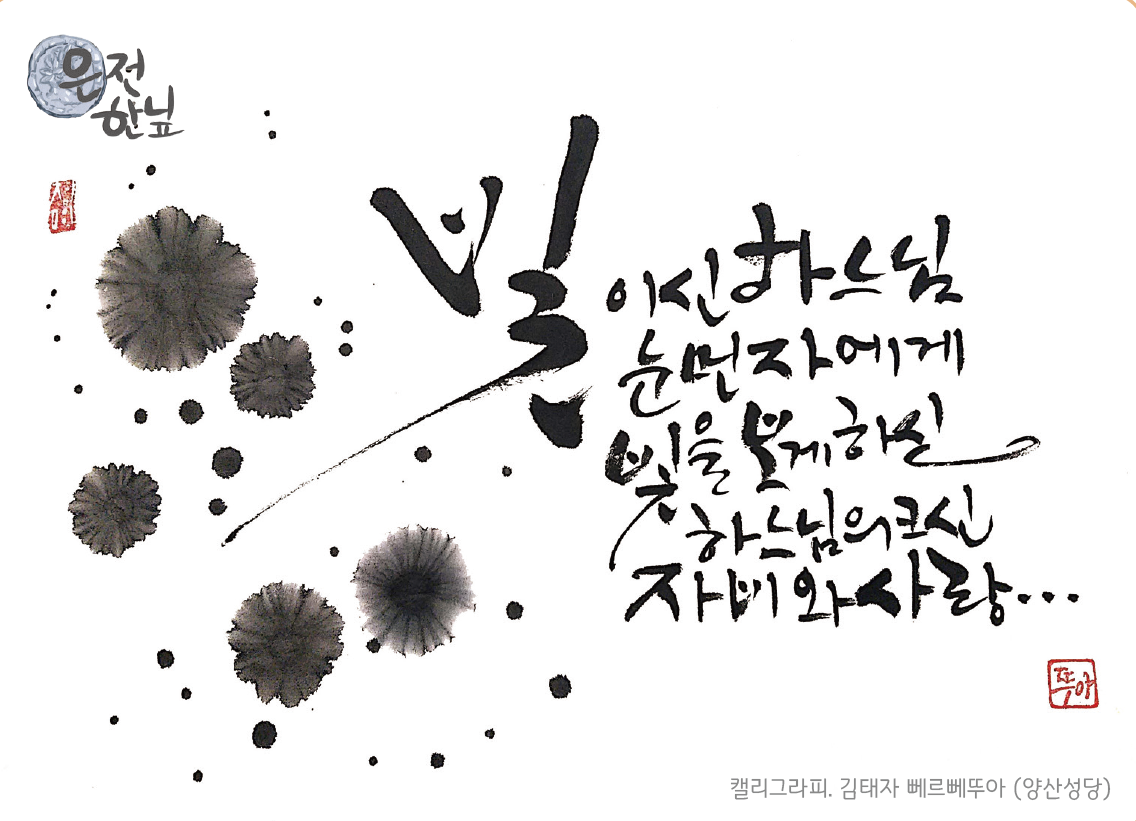 은전
한닢
빛이신 하느님
눈먼자에게
빛을 보게하신
하느님의 크신
자비와 사랑...
뚜아
캘리그라피. 김태자 뻬르뻬뚜아 (양산성당)